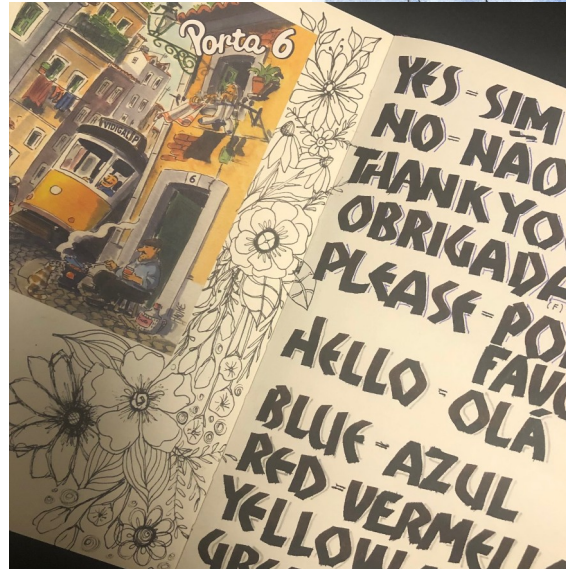 Porta 6
6
YES = SIM
NO = NÃO
THANK YOU
OBRIGADA
[F]
PLEASE = POR
FAVO
HELLO = OLÁ
BLUE = AZUL
RED = VERMELH
YELLOW